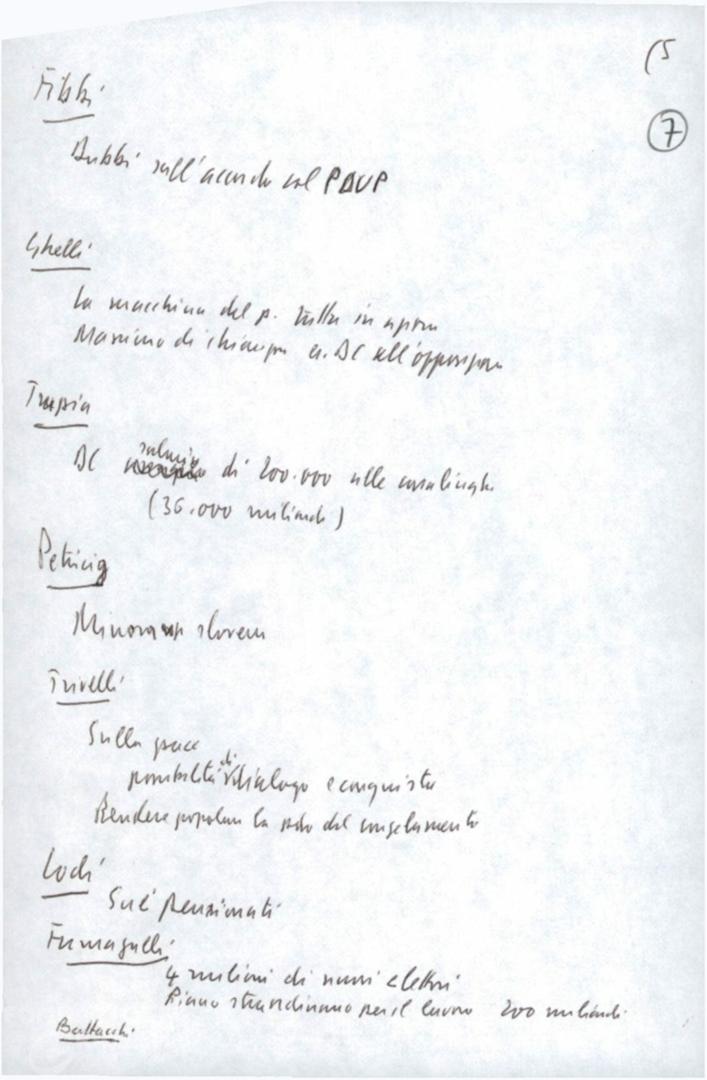 (5
7
Fibbi
Dubbi sull'accordo col PDUP
Ghelli
La macchina del p. tutta in
Massimo di DC all'opposizione
Trupia
DC salario di 200.000 alle casalinghe
(36.000 miliardi)
Petricig
Minoranza slovena
Trivelli
Sulla pace
possibilità di dialogo e conquista
Rendere popolare la del congelamento
Lodi
Sui pensionati
Fumagalli
4 milioni di nuovi elettori
Piano straordinario per il lavoro 200 miliardi
Battacchi